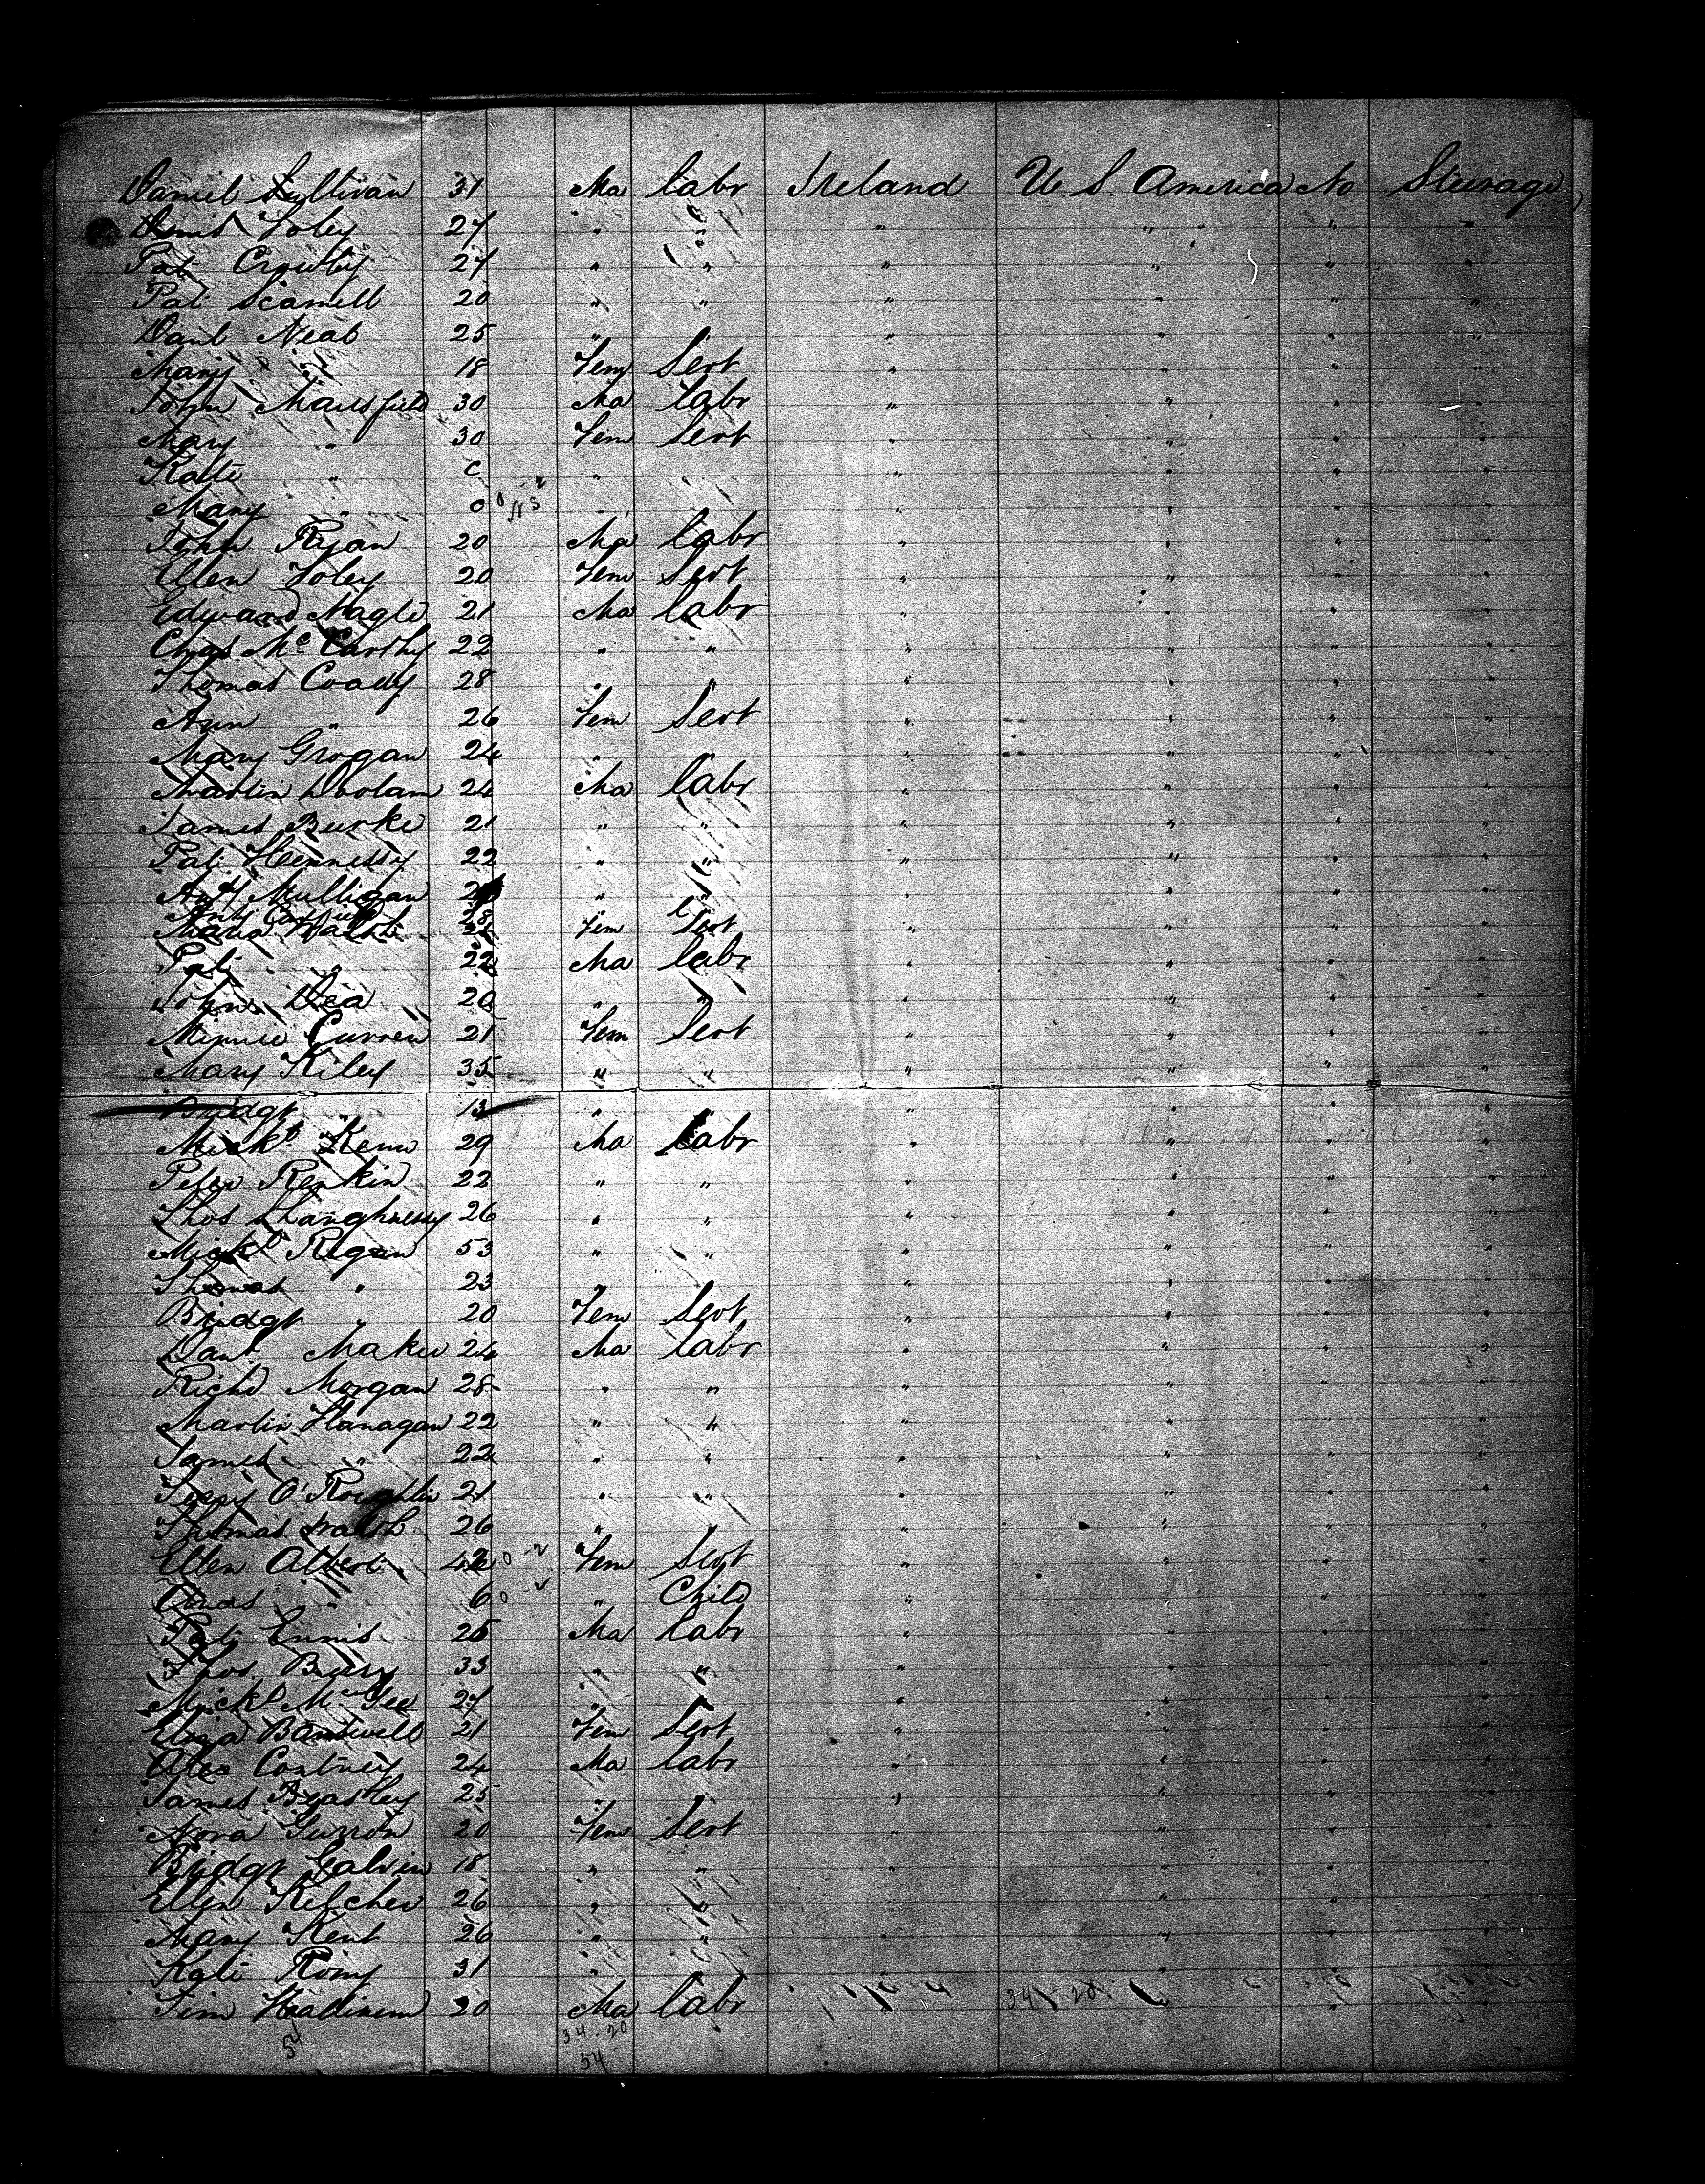 Daniel Sullivan 31 Ma Labr Ireland U. S. America No Steerage
Denis Foley 27 " " " " " " "
Pat Crowley 27 " " " " " "
Pat Scannell 20 " " " " " "
Danl Neal 25 " " " " "
Mary " 18 Fem Sert " " " "
John Mansfield 30 Ma Labr " " " "
Mary " 30 Fem Sert " " " "
Kate " " " " " "
Mary " " " " "
John Ryan 20 Ma Labr " " " "
Ellen Foley 20 Fem Sert " " " "
Edward Nagle 21 Ma Labr " " " "
Chas McCarthy 22 " " " " " "
Thomas Coady 28 " " " " " "
Ann " 26 Fem Sert " " " "
Mary Grogan 24 " " " " " "
Martin Doolan 24 Ma Labr " " " "
James Burke 21 " " " " " "
Pat Hennessy 22 " " " " " "
Andy Mulligan " " " " " "
Maria Walsh Fem Sert " " " "
Pat " 22 Ma Labr " " " "
John Dea 20 " " " " " "
Minnie Curren 21 Fem Sert " " " "
Mary Kiley 35 " " " " " "
Bridgt " 13 " " " " "
Mickl 29 Ma Labr " " " "
Peter Renkin 22 " " " " " "
Thos Shaughnessy 26 " " " " " "
Mickl Regan 53 " " " " " "
Thomas " 23 " " " " "
Bridgt " 20 Fem Sert " " " "
Danl Maher 24 Ma Labr " " " "
Richd Morgan 28 " " " " " "
Martin Flanagan 22 " " " " " "
James " 22 " " " " " "
Terry O'Roughlin 21 " " " " " "
Thomas Walsh 26 " " " " "
Ellen Albert 42 Fem Sert " " " "
" 6 " Child " " " "
Pat Ennis 25 Ma Labr " " " "
Thos Barry 33 " " " " " "
Mickl McGee 27 " " " " " "
Eliza Barnwell 21 Fem Sert " " " "
Alex Courtney 24 Ma Labr " " " "
James Beasley 25 " " " " " "
Nora 20 Fem Sert " " " "
Bridgt Galvin 18 " " " " " "
Ellen Kelcher 26 " " " " " "
Mary Kent 26 " " " " " "
Kate 31 " " " " "
Tim 20 Ma Labr " " "
54 34-20
54